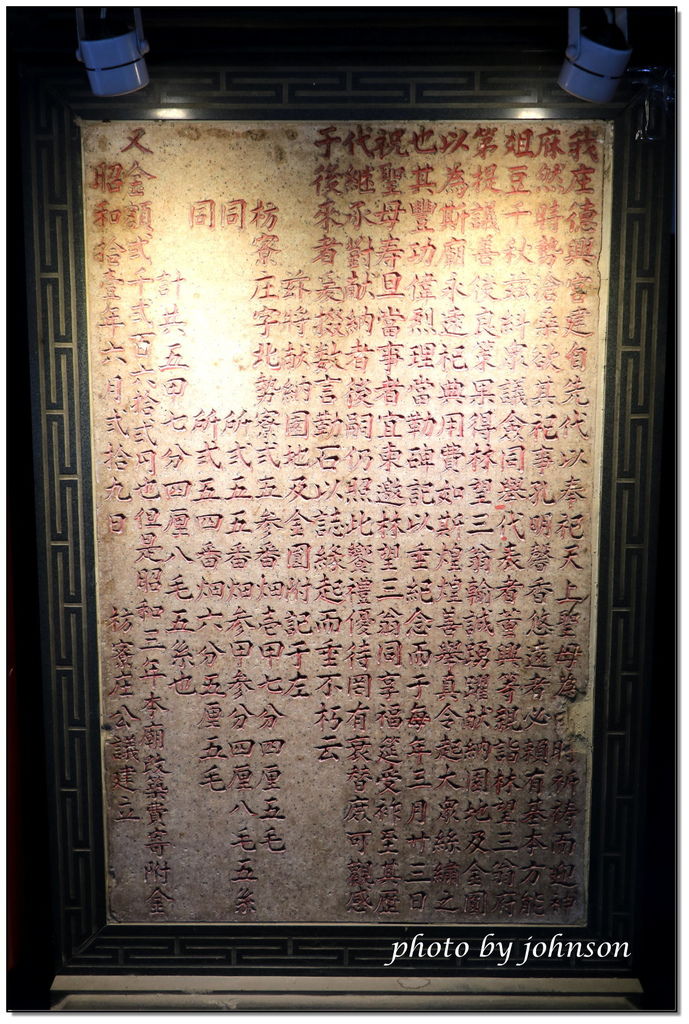 我座德興宮建自先代以奉祀天上聖母為日時祈祷而迎神
庥然時勢滄桑欲其祀事孔明馨香悠遠者必賴有基本方能
俎豆千秋玆糾衆議僉同舉代表者董興等親詣林望三翁府
第提議善後良策果得林望三翁輸誠踴躍献納園地及金圓
以為斯廟永遠祀典用費如斯煌煌善舉真令起大衆絲繡之
也其豐功偉烈理當勒碑記以垂紀念而于每年三月廿三日
祝聖母寿旦當事者宜柬邀林望三翁同享福筵受祚至其歷
代継承對献納者後嗣仍照此饗禮優待罔有衰替庶可觀感
于後來者爰掇數言勒石以誌緣起而垂不朽云
玆将献納園地及金圓附記于左
枋寮庄字北勢寮弍五参番畑壱甲七分四厘五毛
同 所弍五五番畑参甲参分四厘八毛五糸
同 所弍五四番畑六分五厘五毛
計共五甲七分四厘八毛五糸也
又金額弍千弍百六拾弍円也但是昭和三年本廟改築費寄附金
昭和拾壹年六月弍拾九日 枋寮庄公議建立
photo by johnson